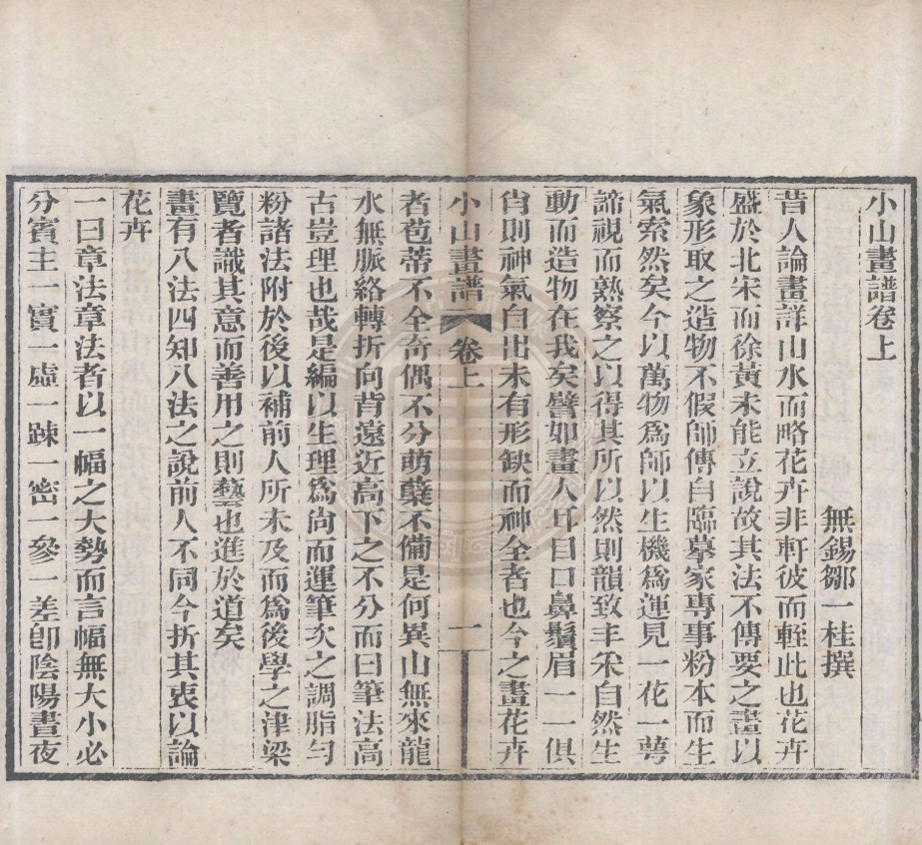 小山畫譜卷上
無錫鄒一桂撰
昔人論畫詳山水而略花卉非軒彼而輊此也花卉
盛於北宋而徐黃未能立說故其法不傳要之畫以
象形取之造物不假師傳自臨摹家專事粉本而生
氣索然矣今以萬物爲師以生機爲運見一花一萼
諦視而熟察之以得其所以然則韻致丰采自然生
動而造物在我矣譬如畫人耳目口鼻鬚眉一一俱
肖則神氣自出未有形缺而神全者也今之畫花卉
小山畫譜 卷上 一
者苞蒂不全奇偶不分萌蘖不備是何異山無來龍
水無脈絡轉折向背遠近高下之不分而曰筆法高
古豈理也哉是編以生理爲尚而運筆次之調脂勻
粉諸法附於後以補前人所未及而爲後學之津梁
覽者識其意而善用之則藝也進於道矣
畫有八法四知八法之說前人不同今折其衷以論
花卉
一曰章法章法者以一幅之大勢而言幅無大小必
分賓主一實一虛一踈一密一參一差卽陰陽晝夜